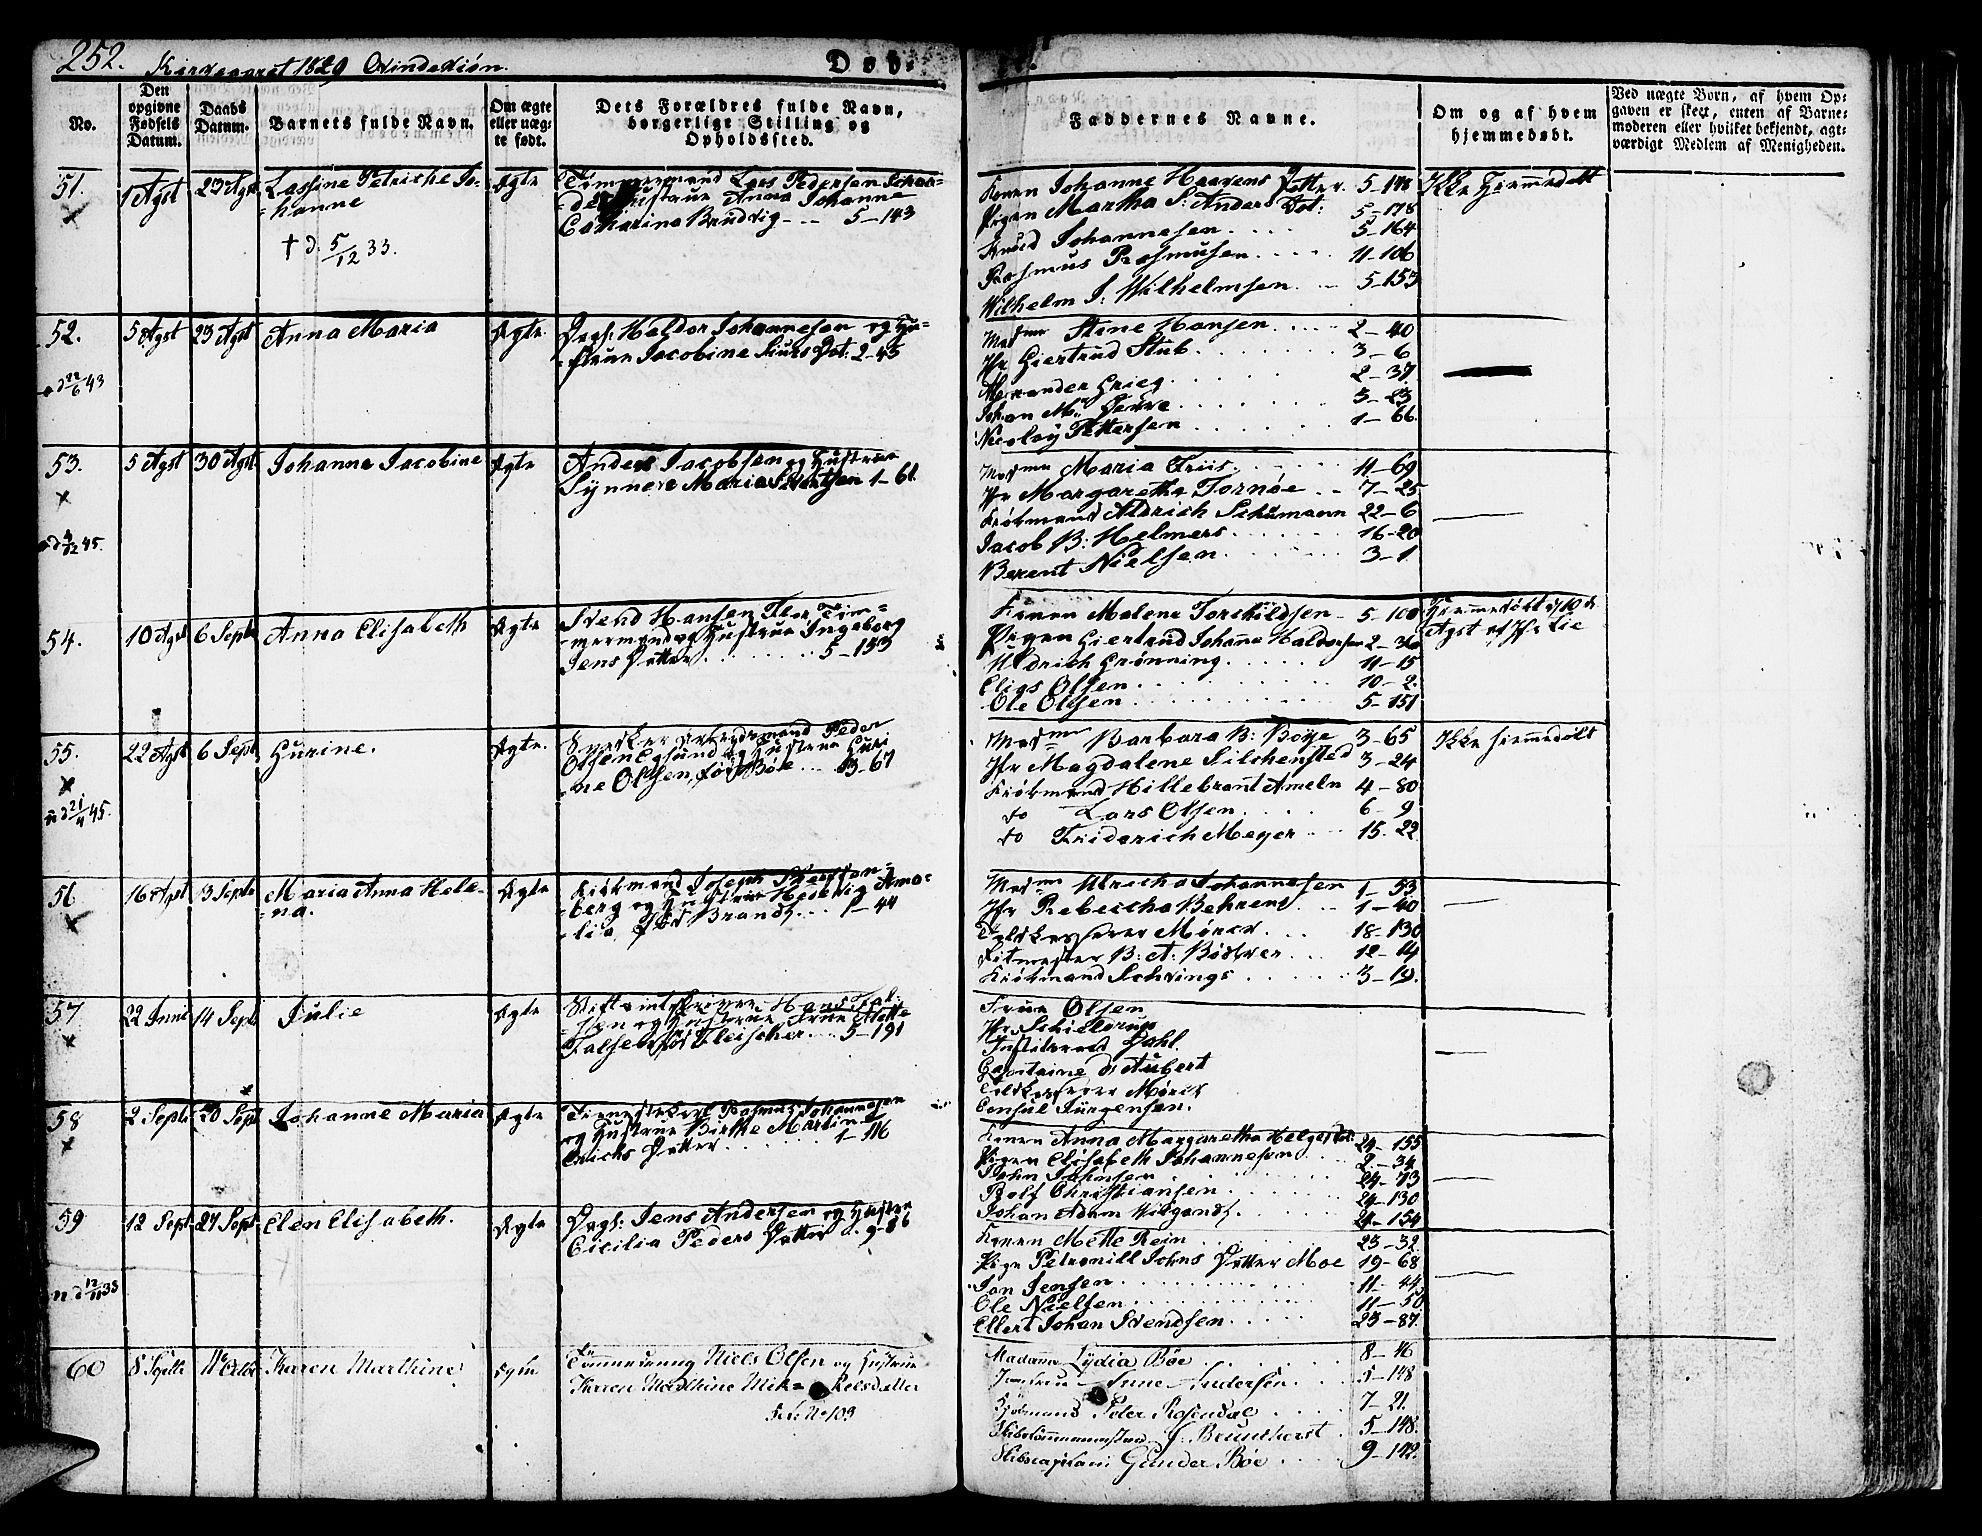 252. Kirkeaaret 1829 Qvindekiøn.
Døb-
No.
Den opgivne Fødsels Datum.
Daabs Datum.
Barnets fulde Navn.
Om ægte eller uæg- te født.
Dets Forældres fulde Navn, borgerlige Stilling og Opholdssted.
Faddernes Navne.
Om og af hvem hjemmedøbt.
Ved uægte Børn, af hvem Op-
gaven er skeet, enten af Barne-
moderen eller hvilket bekjendt, agt-
værdigt Medlem af Menigheden.
51. 1 Agst 23 Agst Lassine Petriche Jo-
hanne
† d. 5/12 33.
Ægte
Tømmermand Lars Pedersen
Hustrue Anna Johanne
Catharina Brudvig 5-143
Konen Johanne Haavens Datter. 5-148
Pigen Martha S: Anders Dot: 5-178
Knud Johannesen 5-164
Rasmus Rasmusen 11-106
Wilhelm J: Wilhelmsen 5-153
Ikke Hjemmedøbt
52. 5 Agst 23 Agst Anna Maria
d 22/6 43
Ægte
Dags: Haldor Johannesen og Hu-
strue Jacobine Siurs Dot: 2-45
Mad me Stene Hansen 2-40
Jfr Giertrud Stub 3-6
Alexander Grieg 2-37
Johan 3-23
Nicolay Pettersen 1-66
53. 5 Agst 30 Agst Johanne Jacobine
d 4/12 45.
Ægte
Anders Jacobsen og Hustrue
Synneve Maria Sivertsen 1-61
Mad me Maria Friis 11-69
Jfr Margaretha Tornøe 7-25
Kiøbmand Aldrich Schumann 22-6
Jacob B: Helmers 16-20
Berent Nielsen 3-1
54. 10 Agst 6 Septr Anna Elisabeth
Ægte
Svend Hansen Flor Tim-
mermand og Hustrue Ingeborg
Jens Datter 5-153
Konen Malene Torchildsen 5-100
Pigen Giertrud Johanne Haldorsen 2-36
Uldrich Grønning 11-15
Elias Olsen 10-2
Ole Olsen 5-151
Hjemmedøbt d 10 de
Agst af Jfr Lie
55. 22 Agst 6 Sept Gurine.
d 21/4 45.
Ægte.
Snedker Arbeidsmand Peder
Olsen Egsund og Hustrue Guri
ne Olsen, fød Bøe 13-67
Mad me Barbara B: Bøye 3-65
Jfr Magdalene Silchensted 3-24
Kiøbmand Hillebrant Ameln 4-80
do Lars Olsen 6 9
do Friderich Meyer 15-22
Ikke hjemmedøbt
56 16 Agst 13 Septr Maria Anna Hele-
na.
Ægte
Kiøbmand Joseph
berg og Hustrue Hedevig Ama-
lia, fød Brandt 1-44
Mad me Ulricha Johannesen 1-53
Jfr Rebeccha Behrens 1-40
Toldkasserer Mørch 18-130
Ritmester B: A: Bødtker 12-14
Kiøbmand Schvings 3-19.
57 22 Juni 14 Sept Julie
Ægte
Stiftamtskriver Hans Fal-
sen og Hustrue Frue Elsette
Falsen fød Fleischer 5-191
Frue Olsen
Jfr Schieldrup
Justitsraad Dahl.
Capitaine d'Aubert
Toldkasserer Mørch
Consul Jürgensen.
58 2 Septr 20 Sept Johanne Maria
Ægte
Tienestekarl Rasmus Johannesen
og Hustrue Birthe Martine
Erichs Datter 1-116
Konen Anna Margaretha Helges Dot: 24-155
Pigen Elisabeth Johannesen 2-34
John Johnsen 24-73
Rolf Christiansen 24-130
Johan Adam Wiegandt 24-154
59 12 Sept 27 Sept Elen Elisabeth.
d 12/11 33
Ægte
Dags: Jens Andersen og Hustrue
Cicilia Peders Datter 9-86
Konen Mette Reim 23-32
Pige Petronill Johns Datter Moe 19-68
Jan Jensen 11-44
Ole Nielsen 11-50
Ellert Johan Svendsen 23-87.
60 8 Septbr 11te Octbr Karen Marthine
Ægte
Niels Olsen og Hustrue
Karen Marthine Mik- kelsdatter
No 103
Madame Lydia Bøe 8-46
Jomfrue Anne Andersen 5-148
Kjøbmand Peter Rosendal 7-21.
Skibstømmermand J. Brunchorst 5-148.
Skibscapitain Gunder Bøe 9-142.